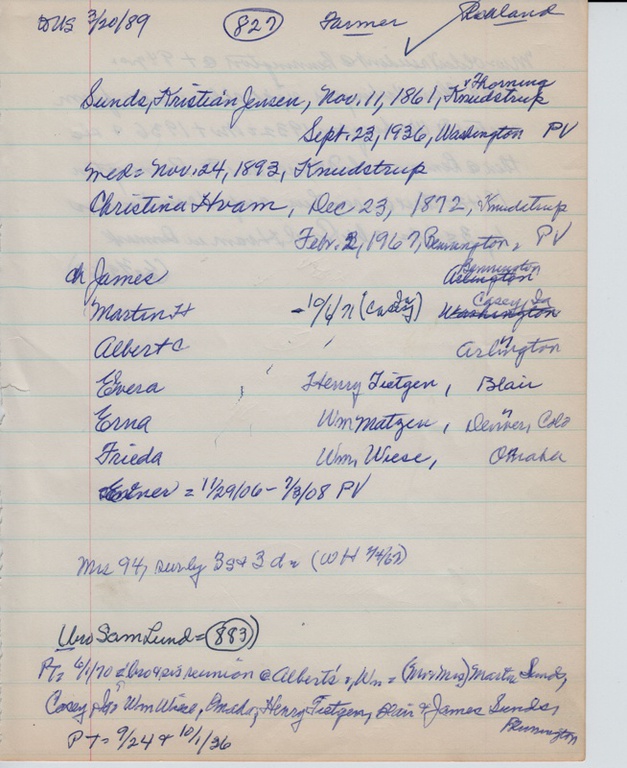 3/20/89 (827) Farmer Rowland
& Thorning
Sunds, Kristian Jensen, Nov. 11, 1861, Knudstrup
Sept. 23, 1936, Washington PV
med = Nov. 24, 1893, Knudstrup
Christina Hvam, Dec 23, 1872, Knudstrup
Febr. 2, 1967, Bennington, PV
Bennington
ch James Arlington
Casey, Ia
Martin H - 10/6/71 (Casey Ia) Washington
Albert C " Arlington
Evera , Henry Tietgen, Blair
Erna Wm Matzen, Denver, Colo
Frieda Wm. Wiese, Omaha
= 11/29/06 - 7/3/08 PV
Mrs 94, surv by 3 s + 3 d = (WH 2/4/67)
Uro Sam Lund = (883)
PT = 6/1/70 bro & sis reunion @ Albert's, Wn = (Mr & Mrs) Martin Sunds,
Casey Wm Wiese, Omaha, Henry Tietgen, Blair & James Sunds,
Bennington
PT = 9/24 & 10/1/36